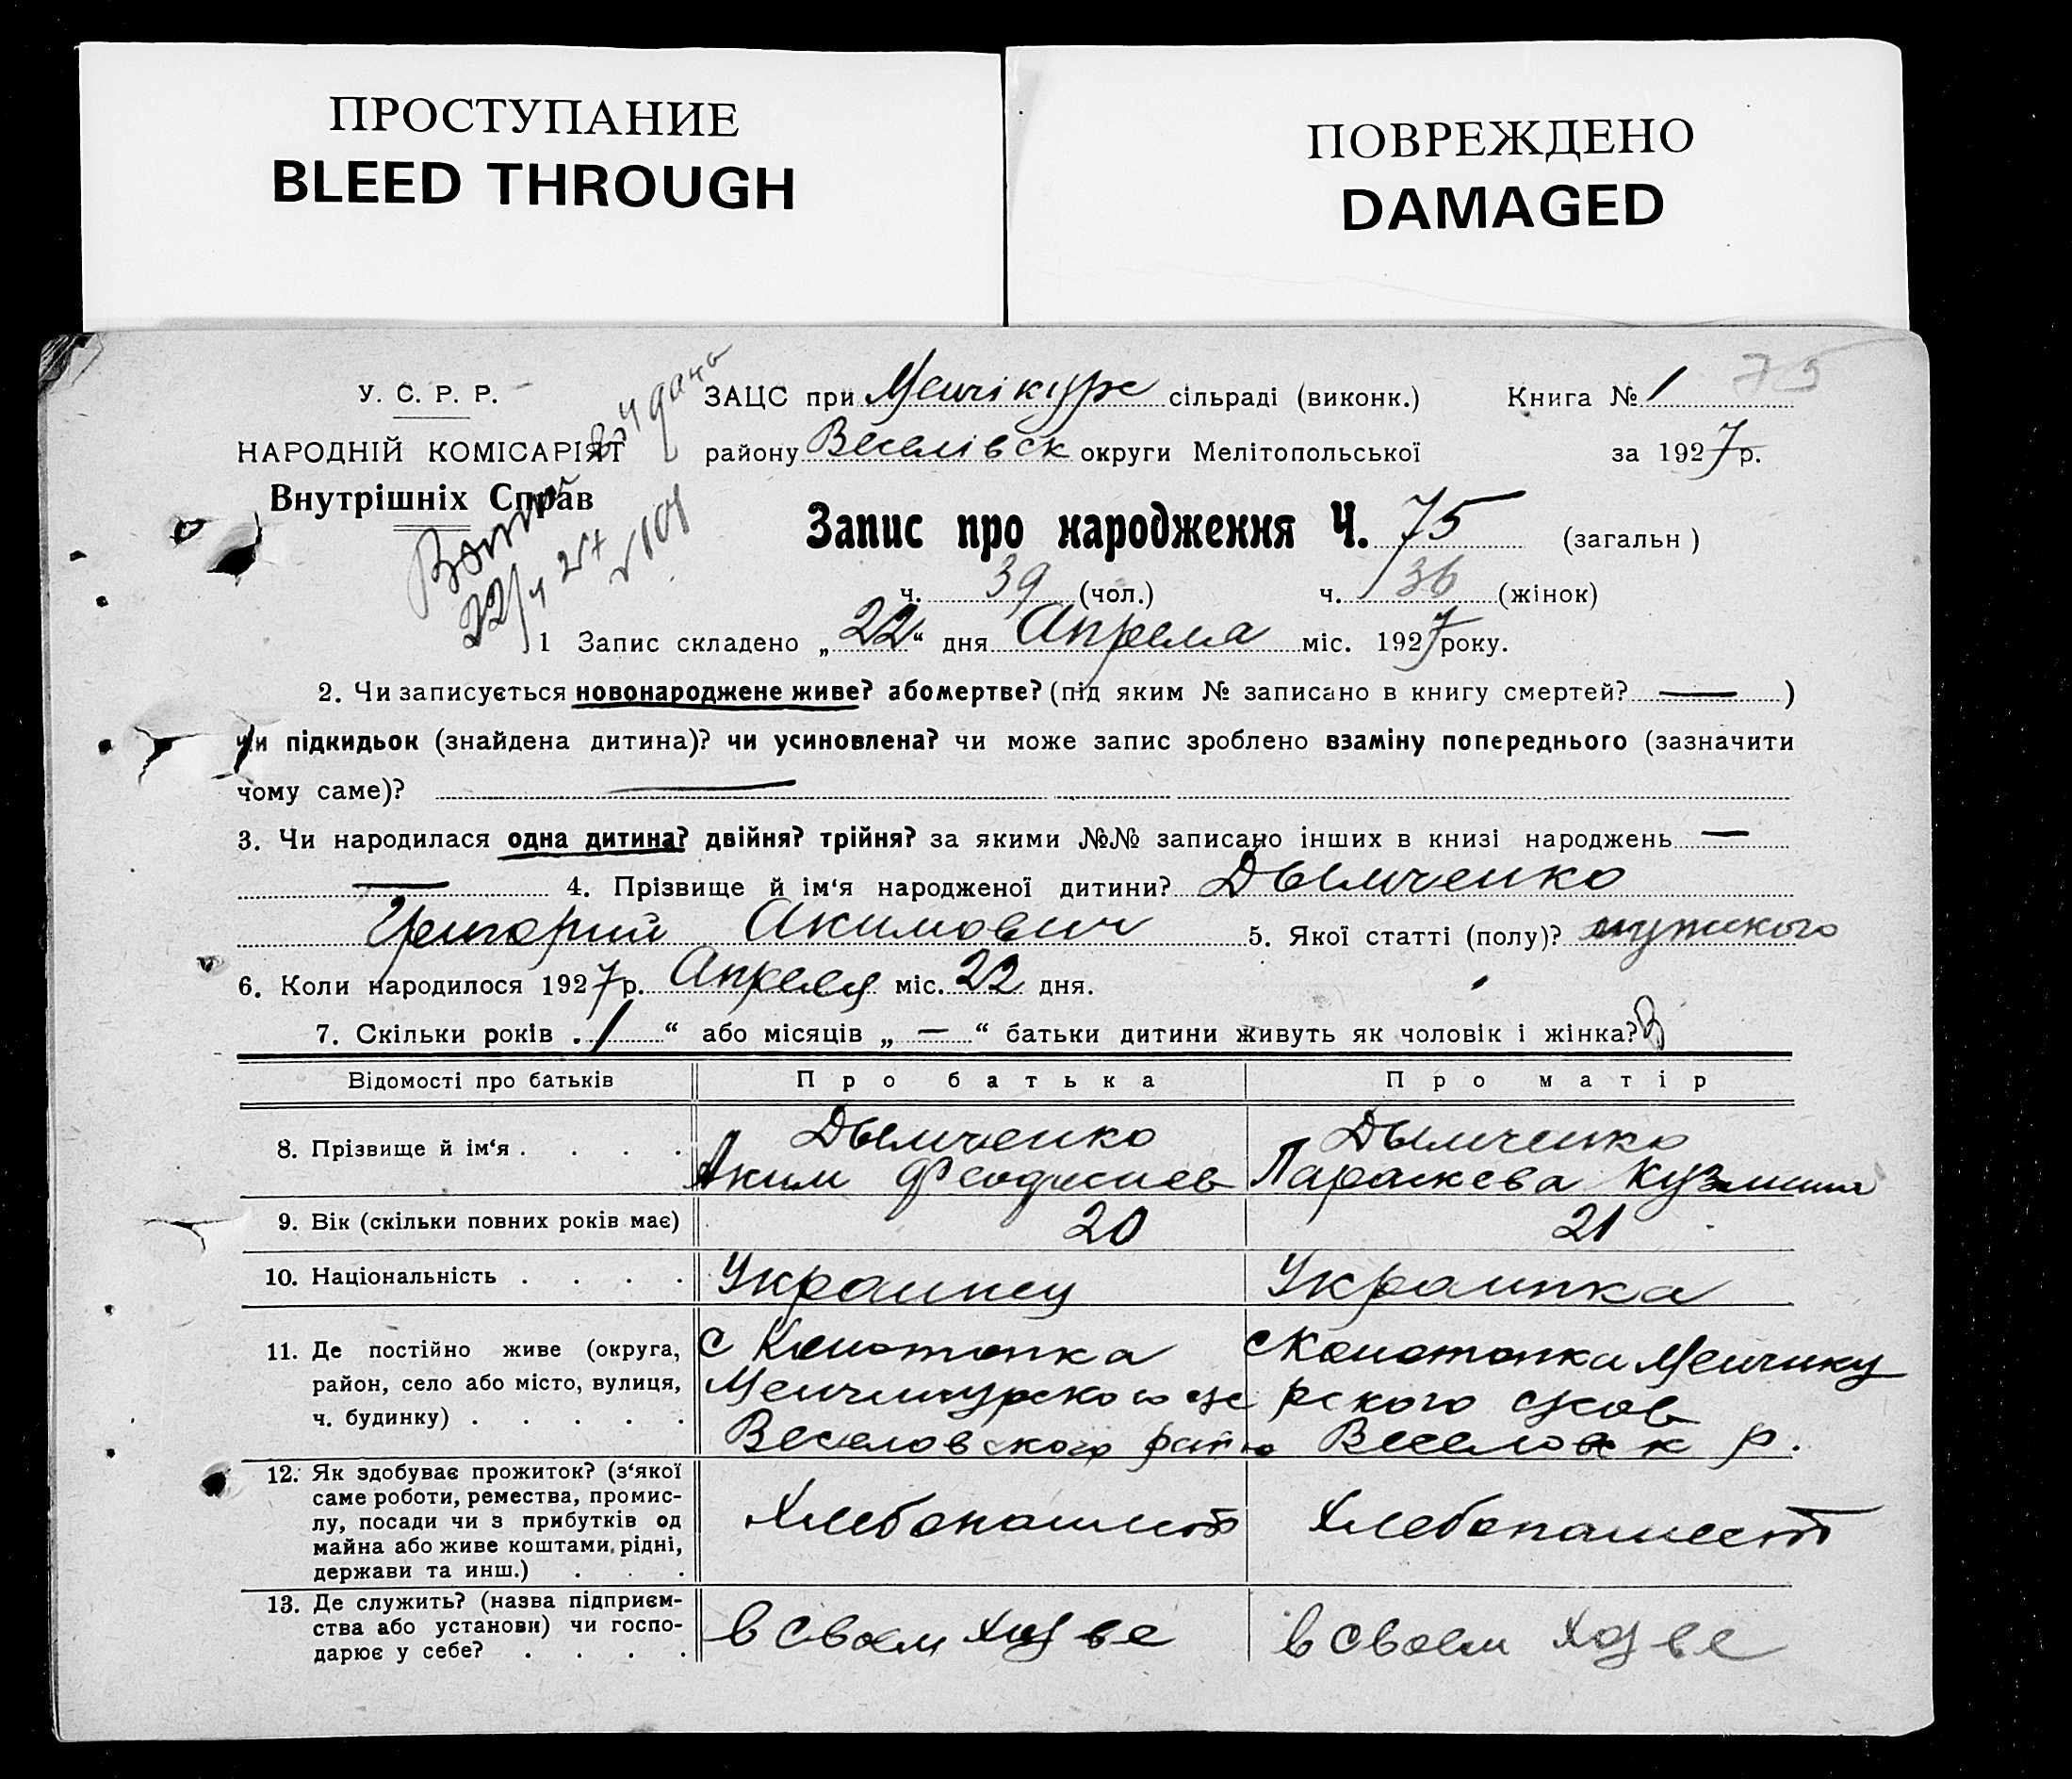 ПРОСТУПАНИЕ
BLEED THROUGH
ПОВРЕЖДЕНО
DAMAGED
75
У. С. Р. Р.
НАРОДНІЙ КОМІСАРІЯТ
Внутрішніх Справ
ЗАЦС при Менчікурс сільраді (виконк.) Книга № 1
району Веселівск округи Мелітопольської за 1927 р.
Запис про народження Ч. 75 (загальн)
ч. 39 (чол.) ч. 36 (жінок)
1 Запис складено „22“ дня Апреля міс. 1927 року.
2. Чи записується новонароджене живе? або мертве? (під яким № записано в книгу смертей? — )
чи підкидьок (знайдена дитина)? чи усиновлена? чи може запис зроблено взаміну попереднього (зазначити
чому саме)? —
3. Чи народилася одна дитина? двійня? трійня? за якими №№ записано інших в книзі народжень —
— 4. Прізвище й ім‘я народженої дитини? Дымченко
Григорий Акимович 5. Якої статті (полу)? мужского
6. Коли народилося 1927 р. Апреля міс. 22 дня.
7. Скільки років . 1 “ або місяців „ — “ батьки дитини живуть як чоловік і жінка?
Відомості про батьків Про батька Про матір
8. Прізвище й ім‘я . . . . Дымченко Дымченко
Аким Феодосиев Параскева Кузминич
9. Вік (скільки повних років має) 20 21
10. Національність . . . . Украинец Украинка
11. Де постійно живе (округа, с Конотопка с Конотопка Менчику
район, село або місто, вулиця, Менчикурского с/с рского с/сов
ч. будинку) . . . . . Веселовского райо Веселовск р.
12. Як здобуває прожиток? (з‘якої
саме роботи, ремества, промис-
лу, посади чи з прибутків од Хлебопашест Хлебопашест
майна або живе коштами, рідні,
держави та инш.) . . .
13. Де служить? (назва підприєм-
ства або установи) чи госпо- в своем хоз ве в своем хоз ве
дарює у себе? . . . .